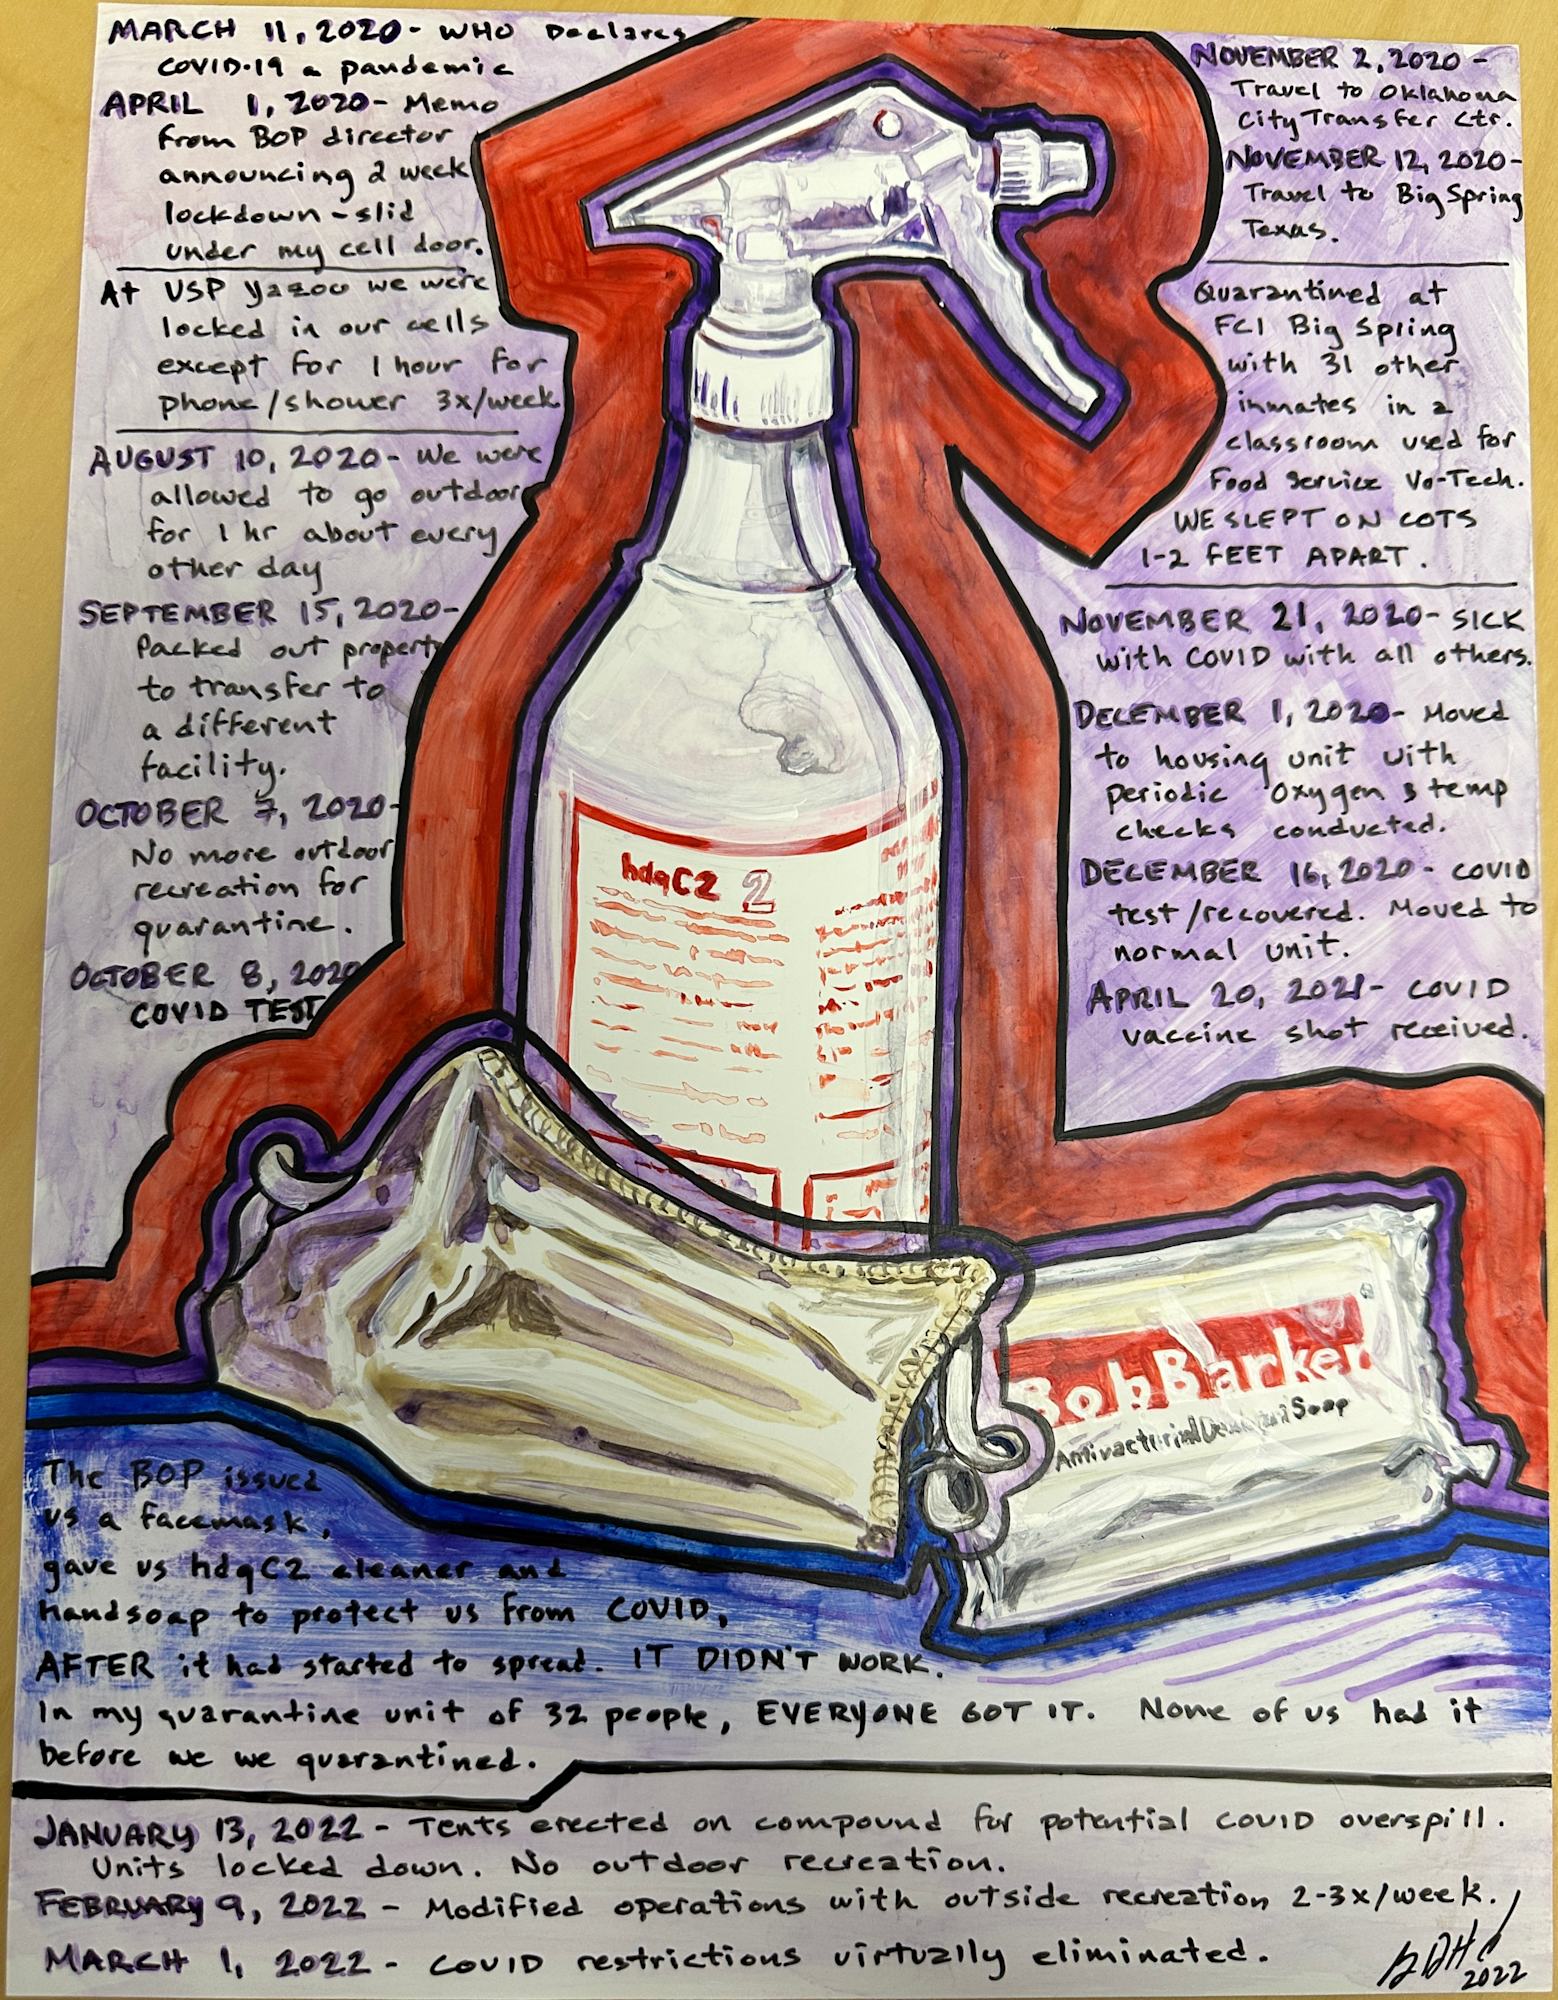 MARCH 11, 2020 - WHO Declares
COVID-19 a pandemic
APRIL 1, 2020 - Memo
from BOP director
announcing 2 week
lockdown - slid
under my cell door.
At USP Yazoo we were
locked in our cells
except for 1 hour for
phone/shower 3x/week.
AUGUST 10, 2020 - We were
allowed to go outdoor
for 1 hr about every
other day
SEPTEMBER 15, 2020 -
Packed out property
to transfer to
a different
facility.
OCTOBER 7, 2020 -
No more outdoor
recreation for
quarantine.
OCTOBER 8, 2020
COVID TEST
NOVEMBER 2, 2020 -
Travel to Oklahoma
City Transfer Ctr.
NOVEMBER 12, 2020 -
Travel to Big Spring
Texas.
Quarantined at
FCI Big Spring
with 31 other
inmates in a
classroom used for
Food Service Vo-Tech.
WE SLEPT ON COTS
1-2 FEET APART.
NOVEMBER 21, 2020 - SICK
with COVID with all others.
DECEMBER 1, 2020 - Moved
to housing unit with
periodic oxygen & temp
checks conducted.
DECEMBER 16, 2020 - COVID
test/recovered. Moved to
normal unit.
APRIL 20, 2021 - COVID
vaccine shot received.
hdqC2 2
BobBarker
Soap
The BOP issued
us a facemask,
gave us hdqC2 cleaner and
handsoap to protect us from COVID,
AFTER it had started to spread. IT DIDN'T WORK.
In my quarantine unit of 32 people, EVERYONE GOT IT. None of us had it
before we we quarantined.
JANUARY 13, 2022 - Tents erected on compound for potential COVID overspill.
Units locked down. No outdoor recreation.
FEBRUARY 9, 2022 - Modified operations with outside recreation 2-3x/week.
MARCH 1, 2022 - COVID restrictions virtually eliminated.
2022